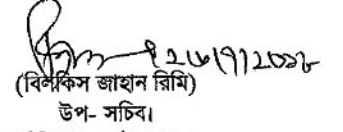 ২৬/৭/২০১৮
(বিলকিস জাহান রিমি)
উপ- সচিব।